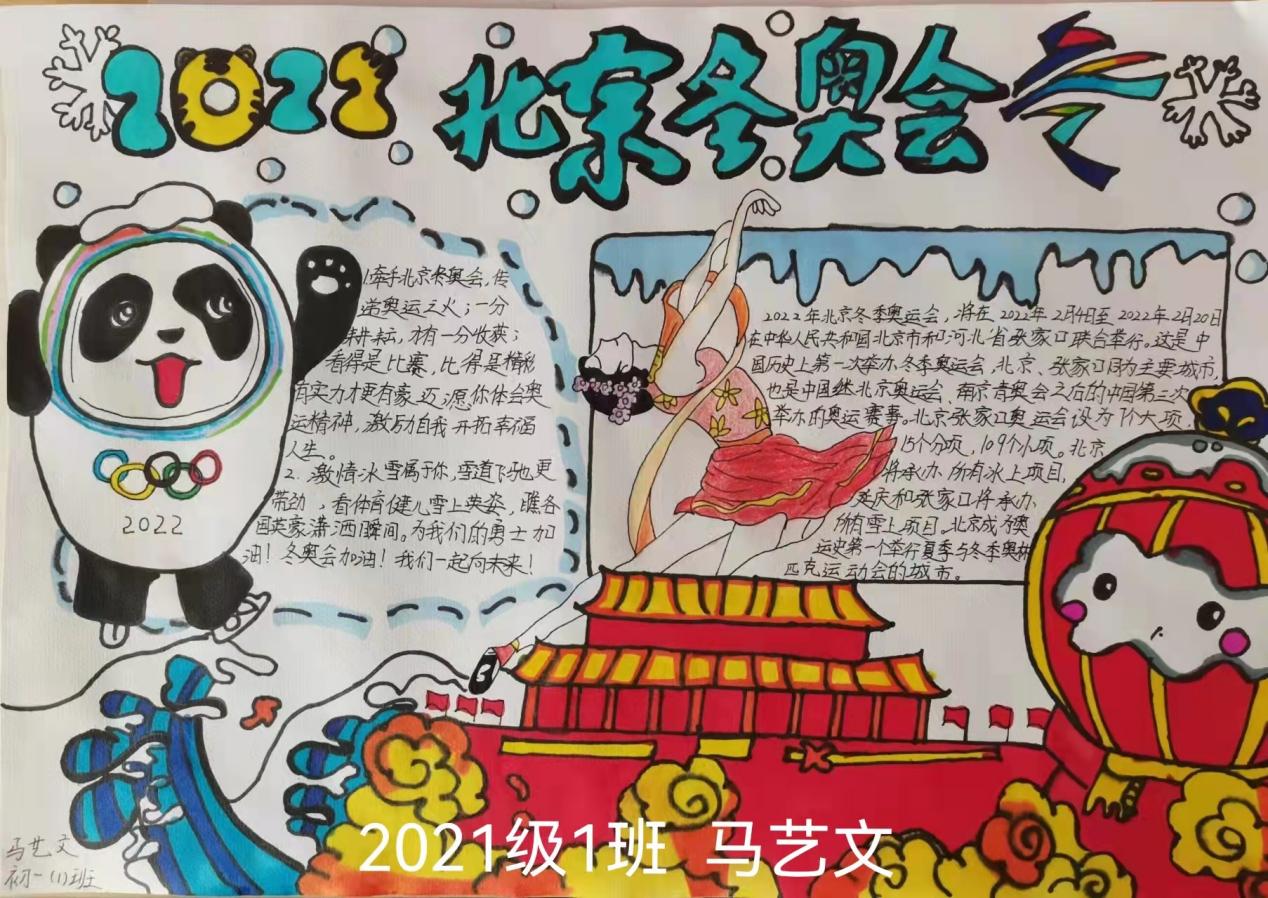 2022
北京冬奥会
1.牵手北京冬奥会,传
递奥运之火;一分
耕耘,才有一分收获;
看得是比赛,比得是精彩
有实力才更有豪迈;愿你体会奥
运精神,激励自我开拓幸福
人生。
2.激情冰雪属于你,雪道飞驰更
带劲,看体育健儿雪上英姿,瞧各
国英豪潇洒瞬间。为我们的勇士加
油!冬奥会加油!我们一起向未来!
2022
2022年北京冬季奥运会,将在2022年2月4日至2022年2月20日
在中华人民共和国北京市和河北省张家口联合举行。这是中
国历史上第一次举办冬季奥运会,北京、张家口同为主要城市,
也是中国继北京奥运会、南京青奥会之后的中国第三次
举办的奥运赛事。北京张家口奥运会设为7个大项,
15个分项,109个小项。北京
将承办所有冰上项目,
延庆和张家口将承办
所有雪上项目。北京成为奥
运史第一个举行夏季与冬季奥林
匹克运动会的城市。
马艺文
初一(1)班
2021级1班 马艺文